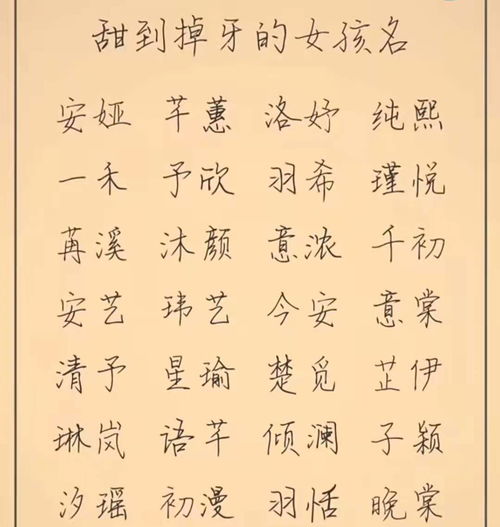 甜到掉牙的女孩名
安娅 芊蕙 洛妤 纯熙
一禾 予欣 羽希 瑾悦
苒溪 沐颜 意浓 千初
安艺 玮艺 今安 意棠
清予 星瑜 楚觅 芷伊
琳岚 语芊 倾澜 子颖
汐瑶 初漫 羽恬 晚棠